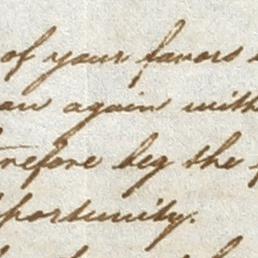 of your favors
again with
refore beg the
portunity.